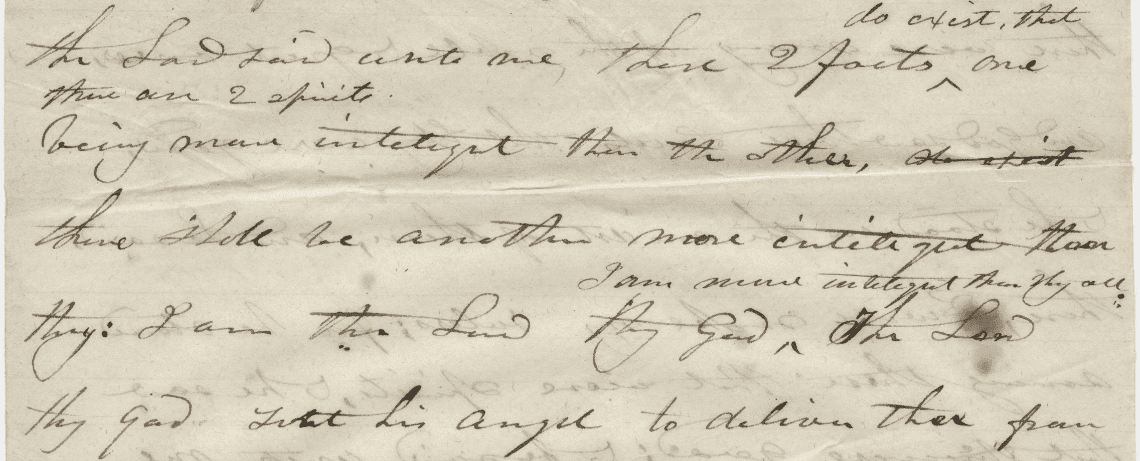 do exist, that
the Lord said unto me, these 2 facts ^ one
there are 2 spirits.
being more inteligent than the other, do exist
there shall be another more inteligent than
I am more inteligent than they all:
they: I am the Lord thy God, ^ The Lord
thy God sent his angel to deliver thee from